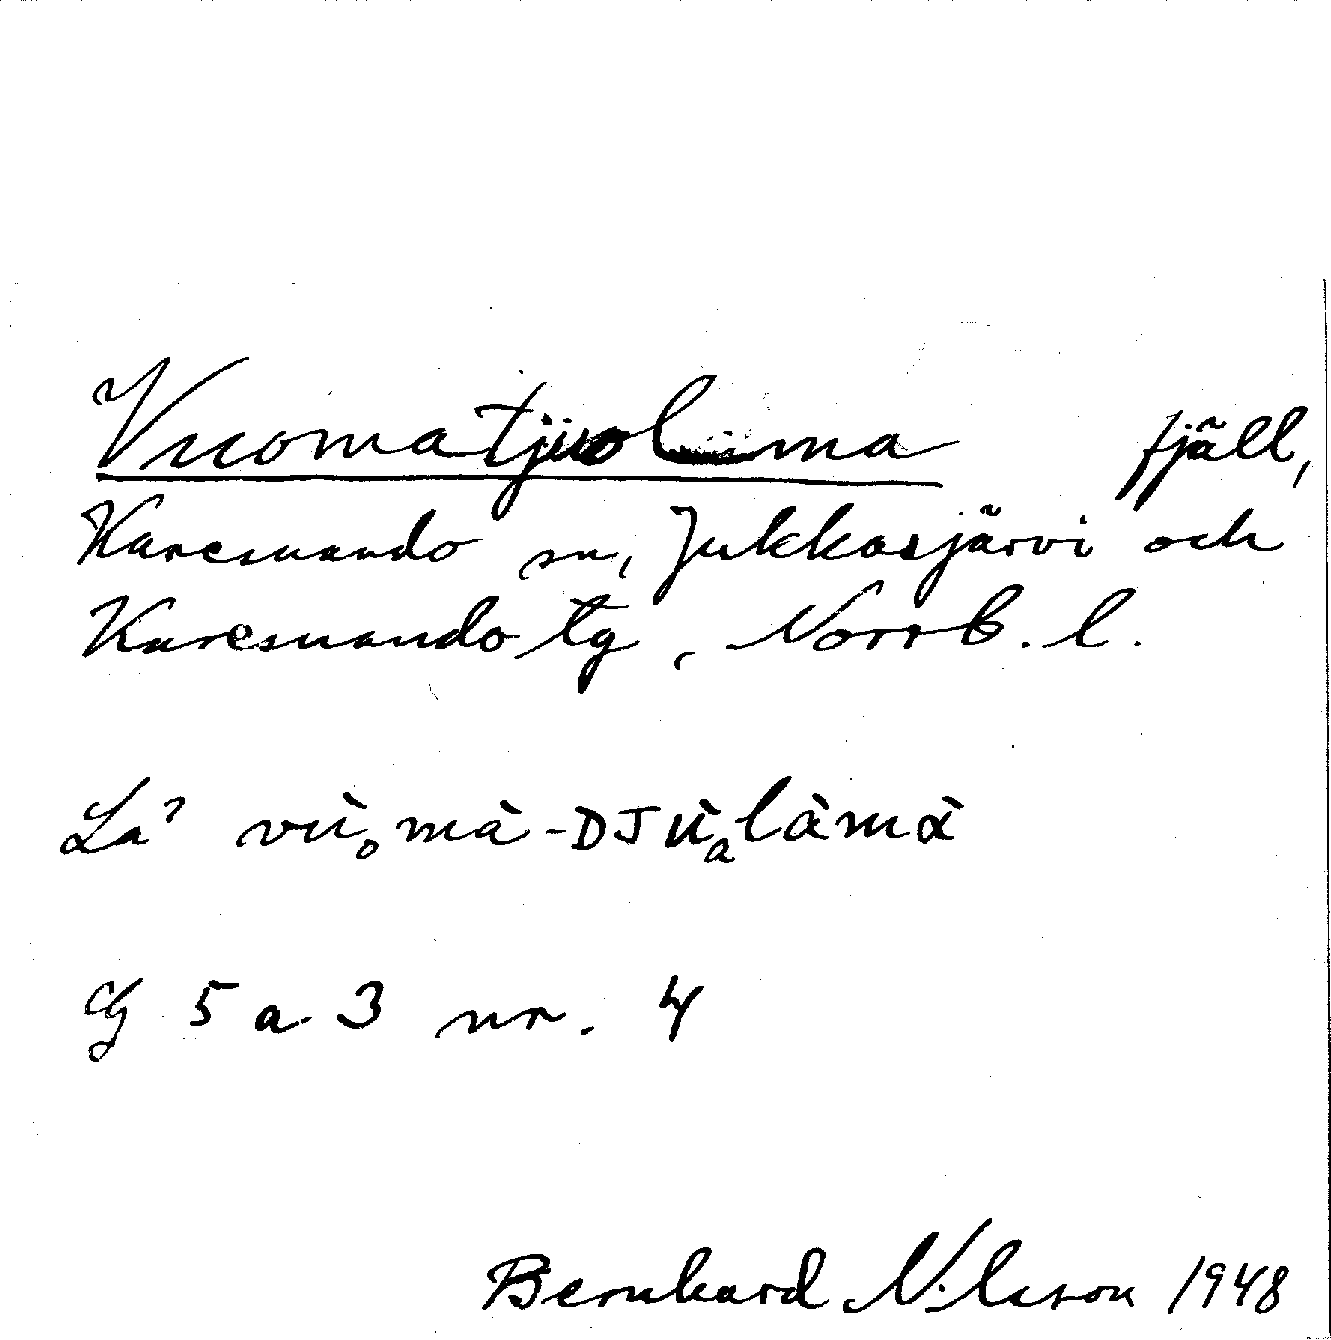 Vuomatjuolma fjäll,
Karesuando sn, Jukkasjärvi och
Karesuando tg, Norrb. l.
La? vùₒmà-DJùₐlàmὰ
Cg 5 a 3 nr. 4
Bernhard Nilsson 1948